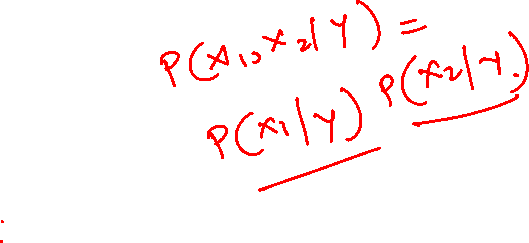 P(x1, x2 | Y) =
P(x1 | Y) P(x2 | Y)